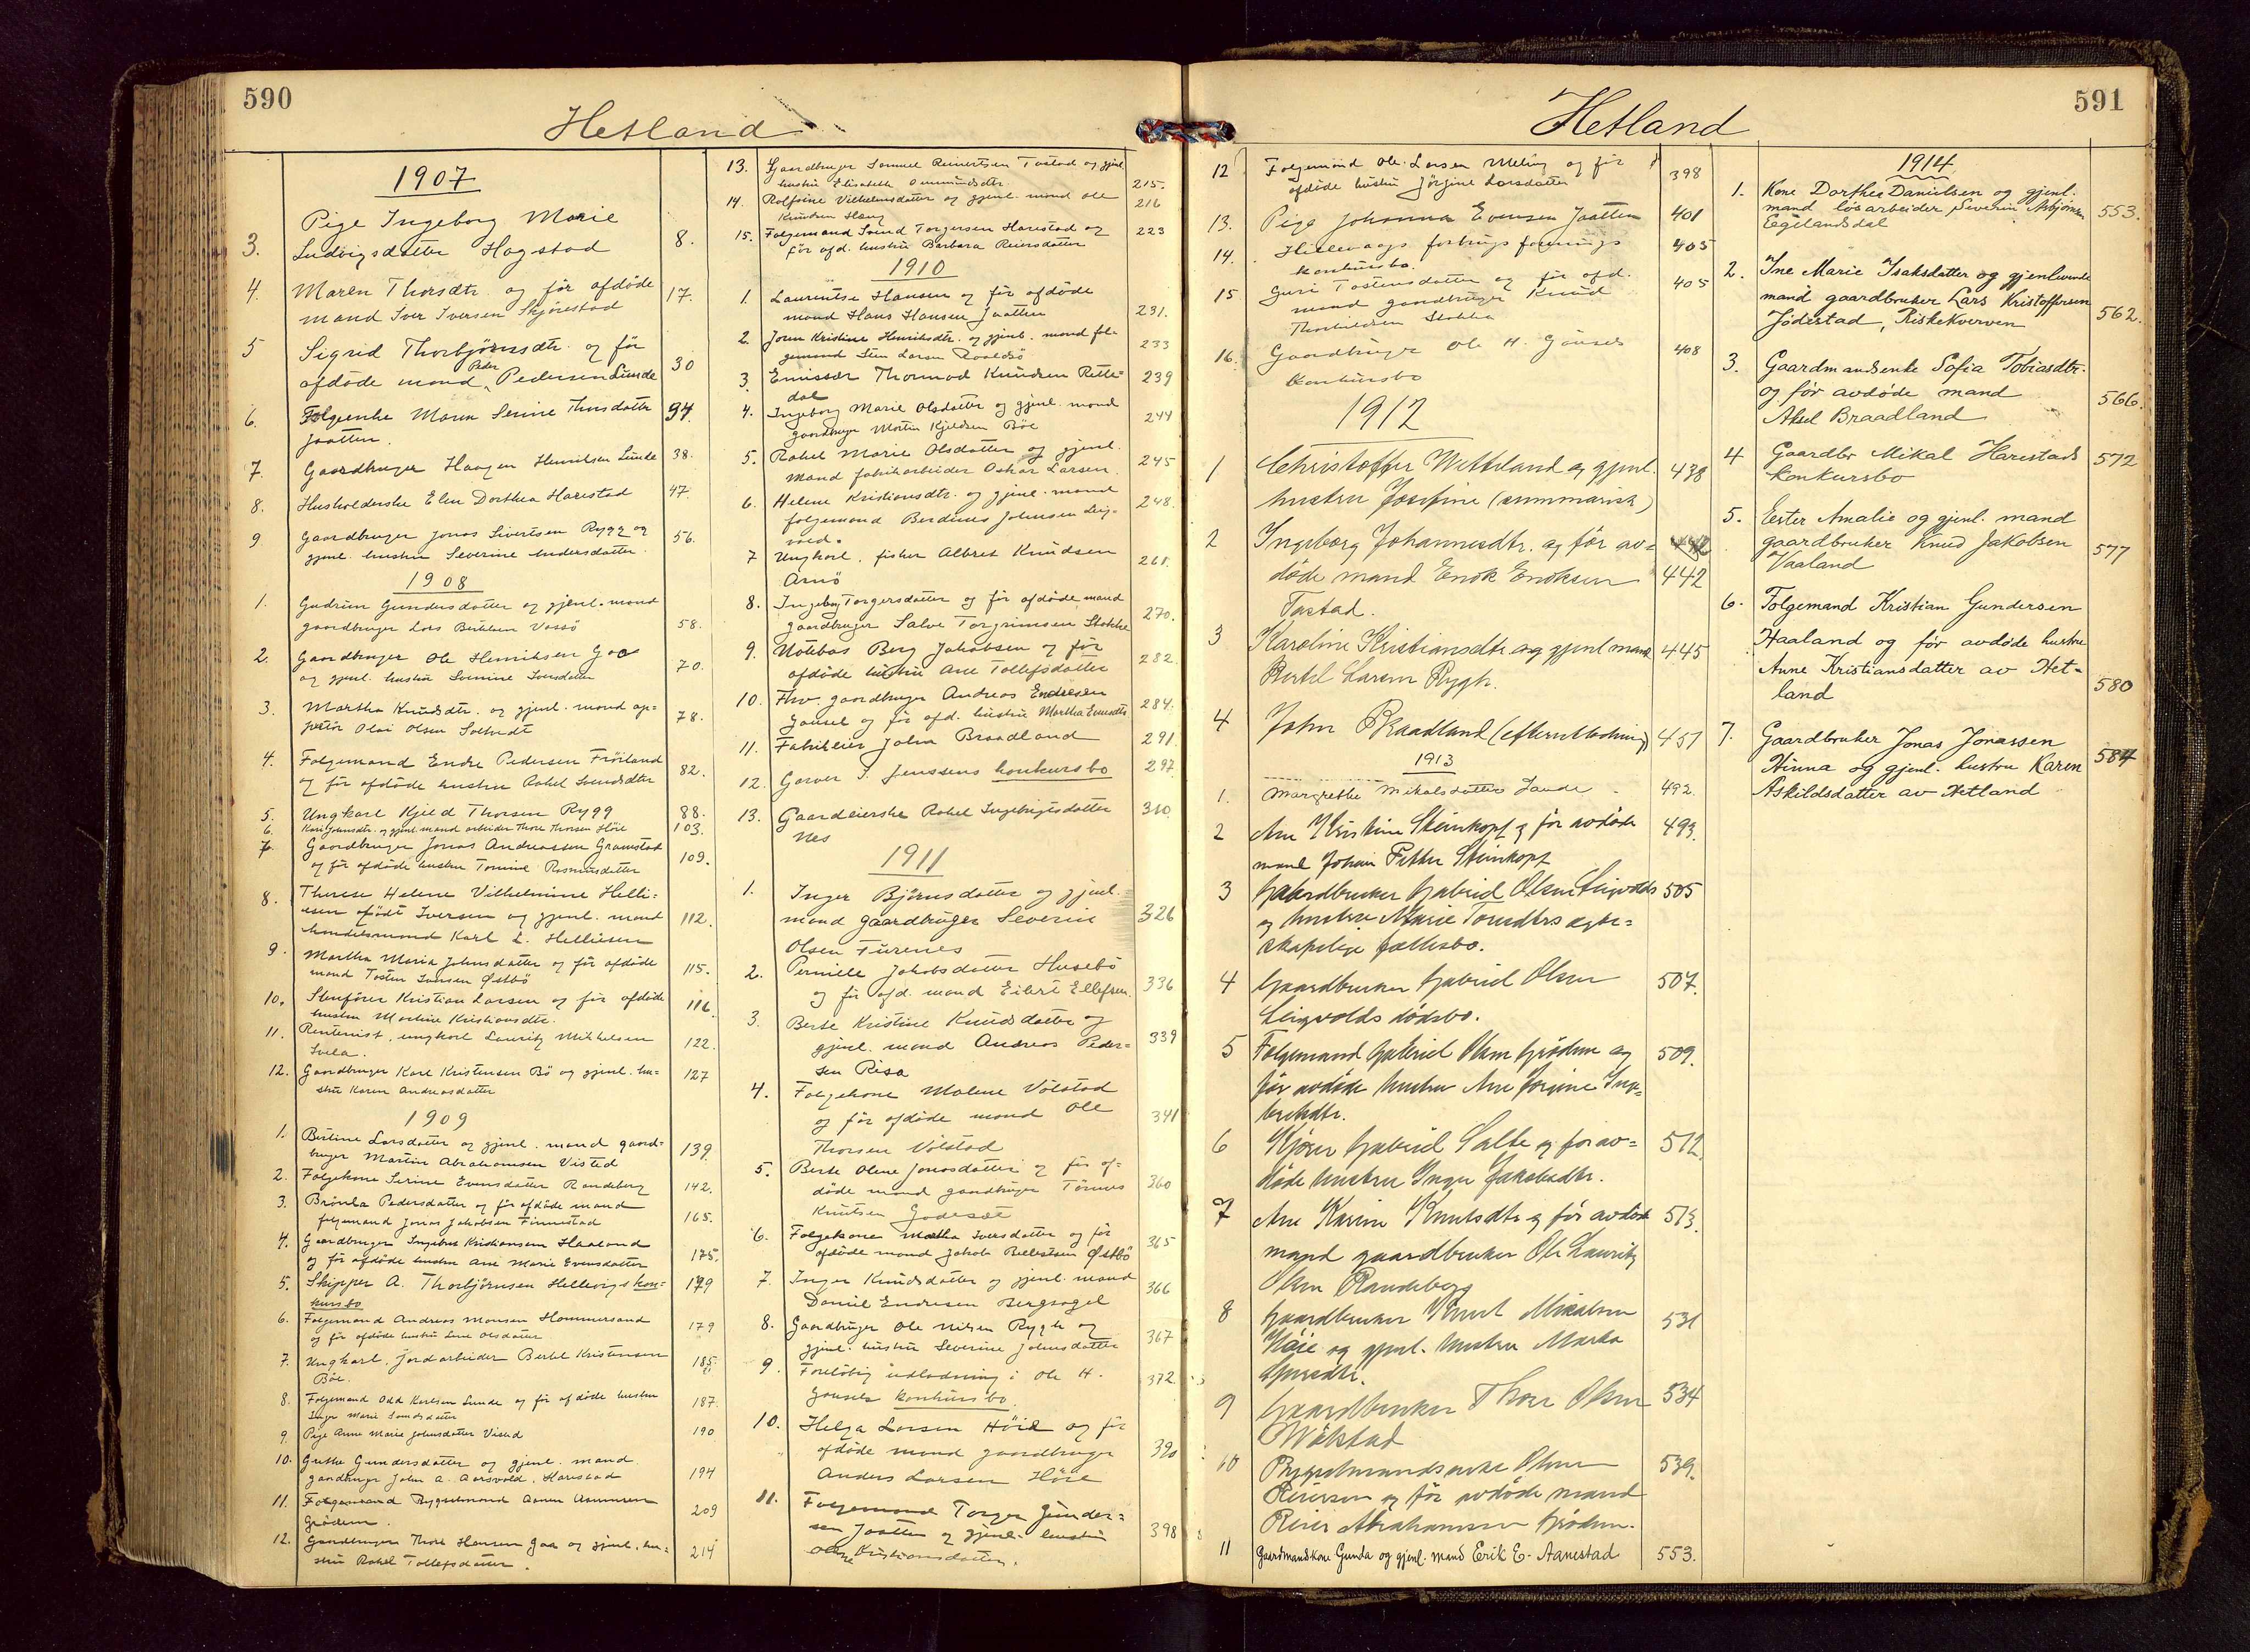 590
Hetland
1907
3. Pige Ingeborg Marie
Ludvigsdatter Hogstad 8.
4. Maren Thorsdtr. og før afdøde
mand Iver Iversen Skjørestad 17.
5 Sigrid Thorbjørnsdtr. og før
Peder
afdøde mand Pedersen Lunde 30
6. Følgeenke Maren Serine Thorsdatter 94.
Jaatten.
7. Gaardbruger Haagen Henriksen Lunde 38.
8. Husholderske Elen Dorthea Harestad 47.
9. Gaardbruger Jonas Sivertsen Rygg og
gjenl. hustru Severine Andersdatter. 56.
1908
1. Gudrun Gundersdatter og gjenl. mand
gaardbruger Lars Bertelsen Vassø 58.
2. Gaardbruger Ole Henriksen Gaa
og gjenl. hustru Severine Iversdatter 70.
3. Martha Knudsdtr. og gjenl. mand op-
petør Olai Olsen 78.
4. Følgemand Endre Pedersen Frøiland
og før afdøde hustru Rakel Svendsdatter 82.
5. Ungkarl Kjeld Thorsen Rygg 88.
6. Kari Johnsdtr. og gjenl. mand arbeider Thore Thorsen Høie 103.
7. Gaardbruger Jonas Andreassen Gramstad
og før afdøde hustru Tomine Rasmusdatter 109.
8. Therese Helene Vilhelmine Helli-
esen født Iversen og gjenl. mand
handelsmand Karl L. Helliesen 112.
9. Martha Maria Johnsdatter og før afdøde
mand Tosten Iversen Østbø 115.
10. Stenfører Kristian Larsen og før afdøde
hustru Martine Kristiansdtr. 116.
11. Rentenist, ungkarl Lauritz Mikkelsen
Svela. 122.
12. Gaardbruger Kare Kristensen Bø og gjenl. hu-
stru Karen Andreasdatter 127
1909
1. Bertine Larsdatter og gjenl. mand gaard-
bruger Martin Abrahamsen Visted 139.
2. Følgekone Serine Evensdatter Randeberg 142.
3. Brønla Pedersdatter og før afdøde mand
følgemand Jonas Jakobsen Finnestad 165.
4. Gaardbruger Ingebret Kristiansen Haaland
og før afdøde hustru Ane Marie Evensdatter 175.
5. Skipper A. Thorbjørnsen Hellevigs kon-
kursbo 179
6. Følgemand Andreas Monsen Hommersand
og før afdøde hustru Lene Olsdatter 179
7. Ungkarl, jordarbeider Bertel Kristensen
Bøe. 185.
8. Følgemand Odd Karlsen Lunde og før afdøde hustru
Inger Marie 187.
9. Pige Anne Marie Johnsdatter Visted 190
10. Guthe Gundersdatter og gjenl. mand
gaardbruger John A. Aarsvold, Harestad 194
11. Følgemand Rygselmand Asmundsen
Grødem. 209
12. Gaardbruger Thore Hansen Gaa og gjenl. hu-
stru Rakel Tollefsdatter. 214
13. Gaardbruger Samuel Reinertsen Tastad og gjenl.
hustru Elisabeth Ommundsdtr. 215.
14. Rolfsine Vilhelmsdatter og gjenl. mand Ole
Knudsen Haug 216
15. Følgemand Svend Torgersen Harestad og
før afd. hustru Barbara Reiersdatter 223
1910
1. Laurentse Hansen og før afdøde
mand Hans Hansen Jaatten 231.
2. Joren Kristine Henriksdtr. og gjenl. mand føl-
gemand Sten Larsen Roaldsø 233
3. Emissær Thormod Knudsen Rette-
dal 239
4. Ingeborg Marie Olsdatter og gjenl. mand
gaardbruger Martin Kjeldsen Bøe 244
5. Rakel Marie Olsdatter og gjenl.
mand fabrikarbeider Oskar Larsen. 245
6. Helene Kristiansdtr. og gjenl. mand
følgemand Berdinus Johnsen Leig-
vold. 248.
7 Ungkarl, fisker Albret Knudsen
Arnø 261.
8. Ingeborg Torgersdatter og før afdøde mand
gaardbruger Salve Torgrimsen Stokke 270.
9. Notebas Berg Jakobsen og før
afdøde hustru Ane Tollefsdatter 282.
10. Fhv. gaardbruger Andreas Endresen
Gausel og før afd. hustru Martha Evensdtr 284.
11. Fabrikeier John Braadland 291.
12. Garver I. Jenssens konkursbo 297
13. Gaardeierske Rakel Ingebrigtsdatter
Nes 310
1911
1. Inger Bjørnsdatter og gjenl.
mand gaardbruger Severin
Olsen Furenes 326
2. Pernille Jakobsdatter Husebø
og før afd. mand Eilert Ellefsen. 336
3. Berte Kristine Knudsdatter og
gjenl. mand Andreas Peder-
sen Risa 339
4. Følgekone Malene Vølstad
og før afdøde mand Ole
Thorsen Vølstad 341
5. Berte Oline Jonasdatter og før af-
døde mand gaardbruger Tønnes
Knutsen Godeset 360
6. Følgekone Martha Iversdatter og før
afdøde mand Jakob Østbø 365
7. Inger Knudsdatter og gjenl. mand
Daniel Endresen Bergsagel 366
8. Gaardbruger Ole Nilsen Rygh og
gjenl. hustru Severine Johnsdatter 367
9. Foreløbig udlodning i Ole H.
Gausels konkursbo. 372.
10. Helga Larsen Høie og før
afdøde mand gaardbruger
Anders Larsen Høie 390
11. Følgemand Torger Gunder-
sen Jaatten og gjenl. hustru
Oline Kristiansdatter. 398
591
Hetland
12 Følgemand Ole Larsen Meling og før
afdøde hustru Jørgine Larsdatter 398
13. Pige Johanna Evensen Jaatten 401
14. Hillevaags forbrugsforenings
konkursbo. 405
15 Guri Tostensdatter og før afd.
mand gaardbruger Knud
Thorkildsen Stokka 405
16. Gaardbruger Ole H. Gausels
konkursbo 408
1912
1 Christoffer Wetteland og gjenl.
hustru Josefine (summarisk) 438
2 Ingeborg Johannesdtr. og før av-
døde mand Enok Enoksen 442
Tastad.
3 Karoline Kristiansdtr og gjenl mand 445
Bertel Larsen Rygh.
4 John Braadland (efterutlodning) 451
1913
1. Margrethe Mikalsdatter Jaade 492.
2 Ane Kristine Steinkopf og før avdøde
mand Johan Petter Steinkopf 493.
3 Gaardbruker Gabriel Olsen Leigvolds 505
og hustru Marie Tores egte-
skapelige fællesbo.
4 Gaardbruker Gabriel Olsen
Leigvolds dødsbo. 507.
5 Følgemand Gabriel Olsen Grødem og 509.
før avdøde hustru Ane Jorine Inge-
bretsdtr.
6 Kjører Gabriel Salte og før av- 512.
døde hustru Inger Jakobsdtr.
7 Ane Karine Knutsdtr og før avdøde 513.
mand gaardbruker Ole Lauritz
Olsen Randeberg
8 Gaardbruker Knut Mikalsen
Høie og gjenl. hustru Marta 531
9 Gaardbruker Thore Olsen 534
Vølstad
10 Rygselmandsenke Olene 539.
Reiersen og før avdøde mand
Reier Abrahamsen Grødem.
11 Gaardmandkone Gunda og gjenl. mand Erik E. Aanestad 553.
1914
1. Kone Dorthea Danielsen og gjenl.
mand løsarbeider Severin Asbjørnsen 553.
Egelandsdal
2. Ine Marie Isaksdatter og gjenlevende
mand gaardbruker Lars Kristoffersen
Jødestad, Riskekverven 562.
3. Gaardmandsenke Sofia Tobiasdtr.
og før avdøde mand
Aksel Braadland 566.
4 Gaardbr Mikal Harestads 572
konkursbo
5. Ester Amalie og gjenl. mand
gaardbruker Knud Jakobsen
Vaaland 577
6. Følgemand Kristian Gundersen
Haaland og før avdøde hustru
Anne Kristiansdatter av Het-
land 580
7. Gaardbruker Jonas Jonassen
Hinna og gjenl. hustru Karen 584
Askildsdatter av Hetland